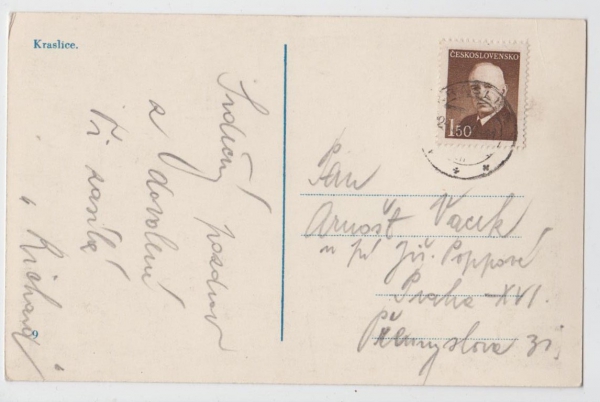 Kraslice.
Srdečný pozdrav
z dovolené
Ti zasílá
Richard
9
ČESKOSLOVENSKO
1.50
Pan
Arnošt Vacek
u pí Jiř. Poppové
Praha-XVI.
Přemyslova 31.